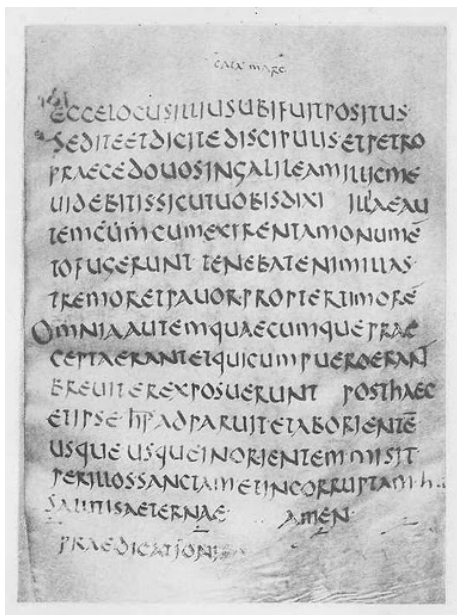 ECCELOCUSILLIUSUBIFUITPOSITUS·
SEDITEETDICITEDISCIPULIS·ETPETRO
PRAECEDOUOSINGALILEAMILLICME
UIDEBITISSICUTUOBISDIXI ILLAEAU
TEMCUMCUMEXIRENTAMONUMĒ
TOFUGERUNT TENEBATENIMILLAS·
TREMORETPAUOR·PROPTERTIMORĒ
OMNIAAUTEMQUAECUMQUEPRAE
CEPTAERANTETQUICUMPUEROERANT
BREUITEREXPOSUERUNT POSTHAEC
ETIPSE hĪS ADPARUITETABORIENTĒ
USQUE USQUEINORIENTEM MISIT
PERILLOSSANCTAMETINCORRUPTAM·h..
SALUTISAETERNAE· AMEN·
PRAEDICATIONIS